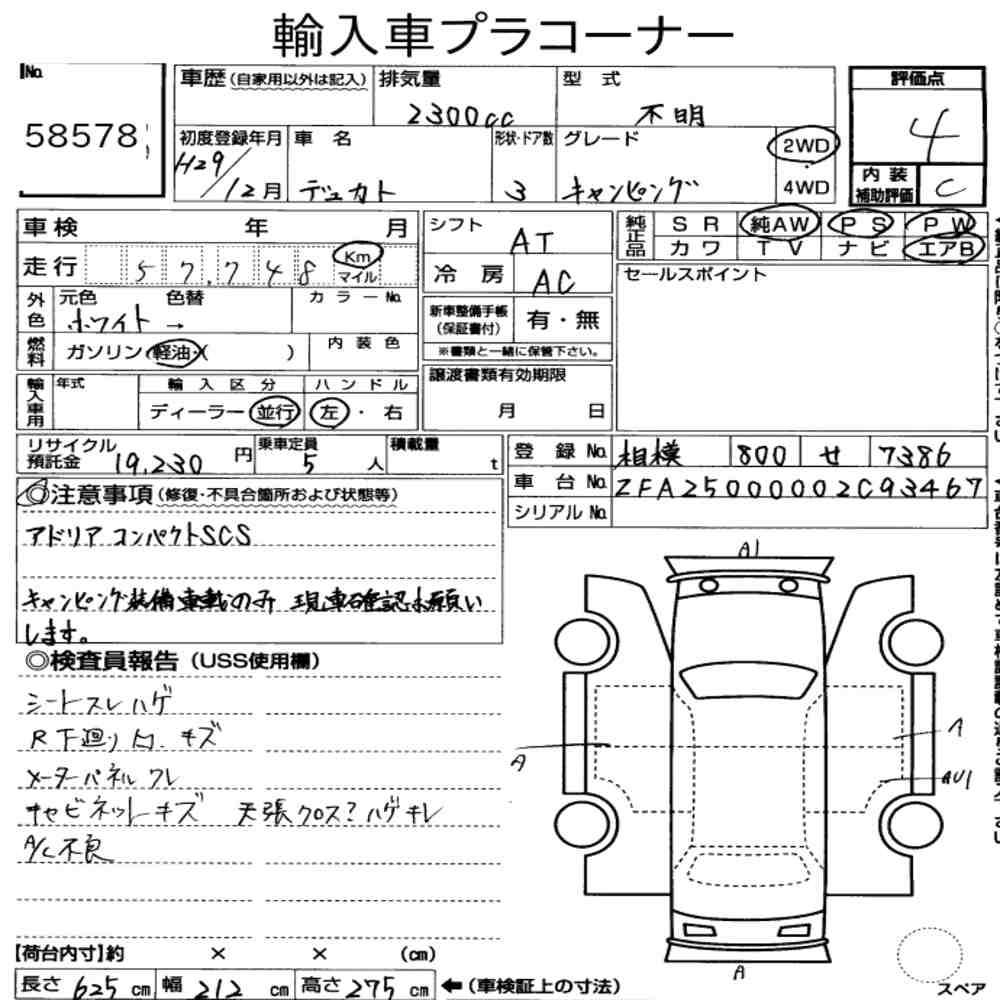 輸入車プラコーナー
No. 58578
車歴(自家用以外は記入) 排気量 2300cc 型式 不明
評価点 4
初度登録年月 H29/12月 車名 デュカト 形状・ドア数 3 グレード キャンピング 2WD 4WD
内装補助評価 C
車検 年 月
シフト AT
純正品 SR 純AW PS PW
カワ TV ナビ エアB
走行 57,748 Km マイル
冷房 AC
セールスポイント
外色 元色 ホワイト → 色替 カラーNo.
新車整備手帳(保証書付) 有・無
※書類と一緒に保管下さい。
燃料 ガソリン・軽油・( ) 内装色
輸入車用 年式 輸入区分 ハンドル
ディーラー 並行 左・右
譲渡書類有効期限
月 日
リサイクル預託金 19,230円 乗車定員 5人 積載量 t
登録No. 相模 800 せ 7386
車台No. ZFA25000002C93467
シリアルNo.
◎注意事項(修復・不具合箇所および状態等)
アドリア コンパクトSCS
キャンピング装備車載のみ 現車確認お願い
します。
◎検査員報告(USS使用欄)
シートスレハゲ
R下廻り凹.キズ
メーターパネルワレ
キャビネットキズ 天張クロス?ハゲキレ
A/C不良
A1
A
A
AU1
A
【荷台内寸】約 × × (cm)
長さ 625cm 幅 212cm 高さ 275cm ←(車検証上の寸法)
スペア